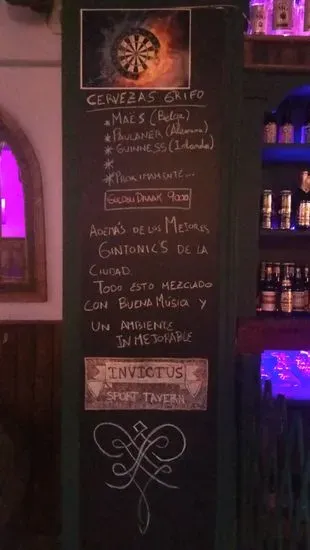 CERVEZAS GRIFO
* MAES (Belga)
* PAULANER (Alemana)
* GUINNESS (Irlanda)
*
* PROXIMAMENTE...
GULDEN DRAAK 9000
ADEMÁS DE LOS MEJORES
GINTONIC'S DE LA
CIUDAD.
TODO ESTO MEZCLADO
CON BUENA MÚSICA Y
UN AMBIENTE
INMEJORABLE
INVICTUS
SPORT TAVERN